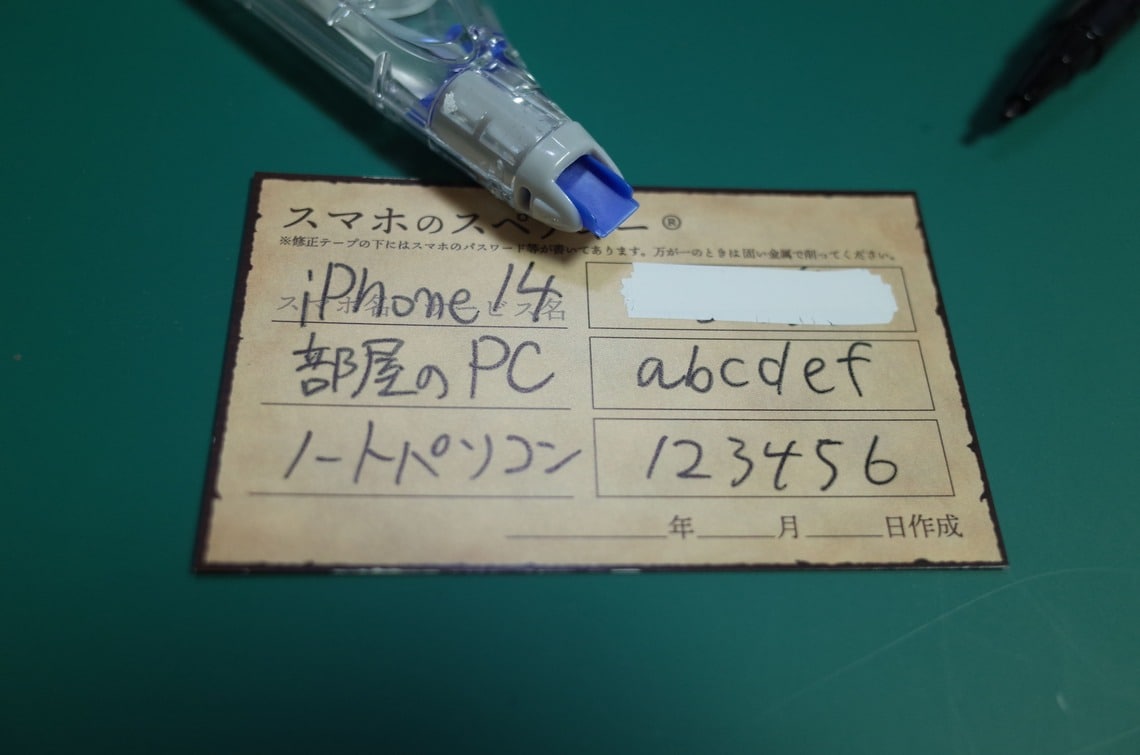 スマホのスペアキー®
※修正テープの下にはスマホのパスワード等が書いてあります。万が一のときは固い金属で削ってください。
iPhone 14
スマホ名 サービス名
部屋のPC
abcdef
ノートパソコン
123456
年 月 日作成